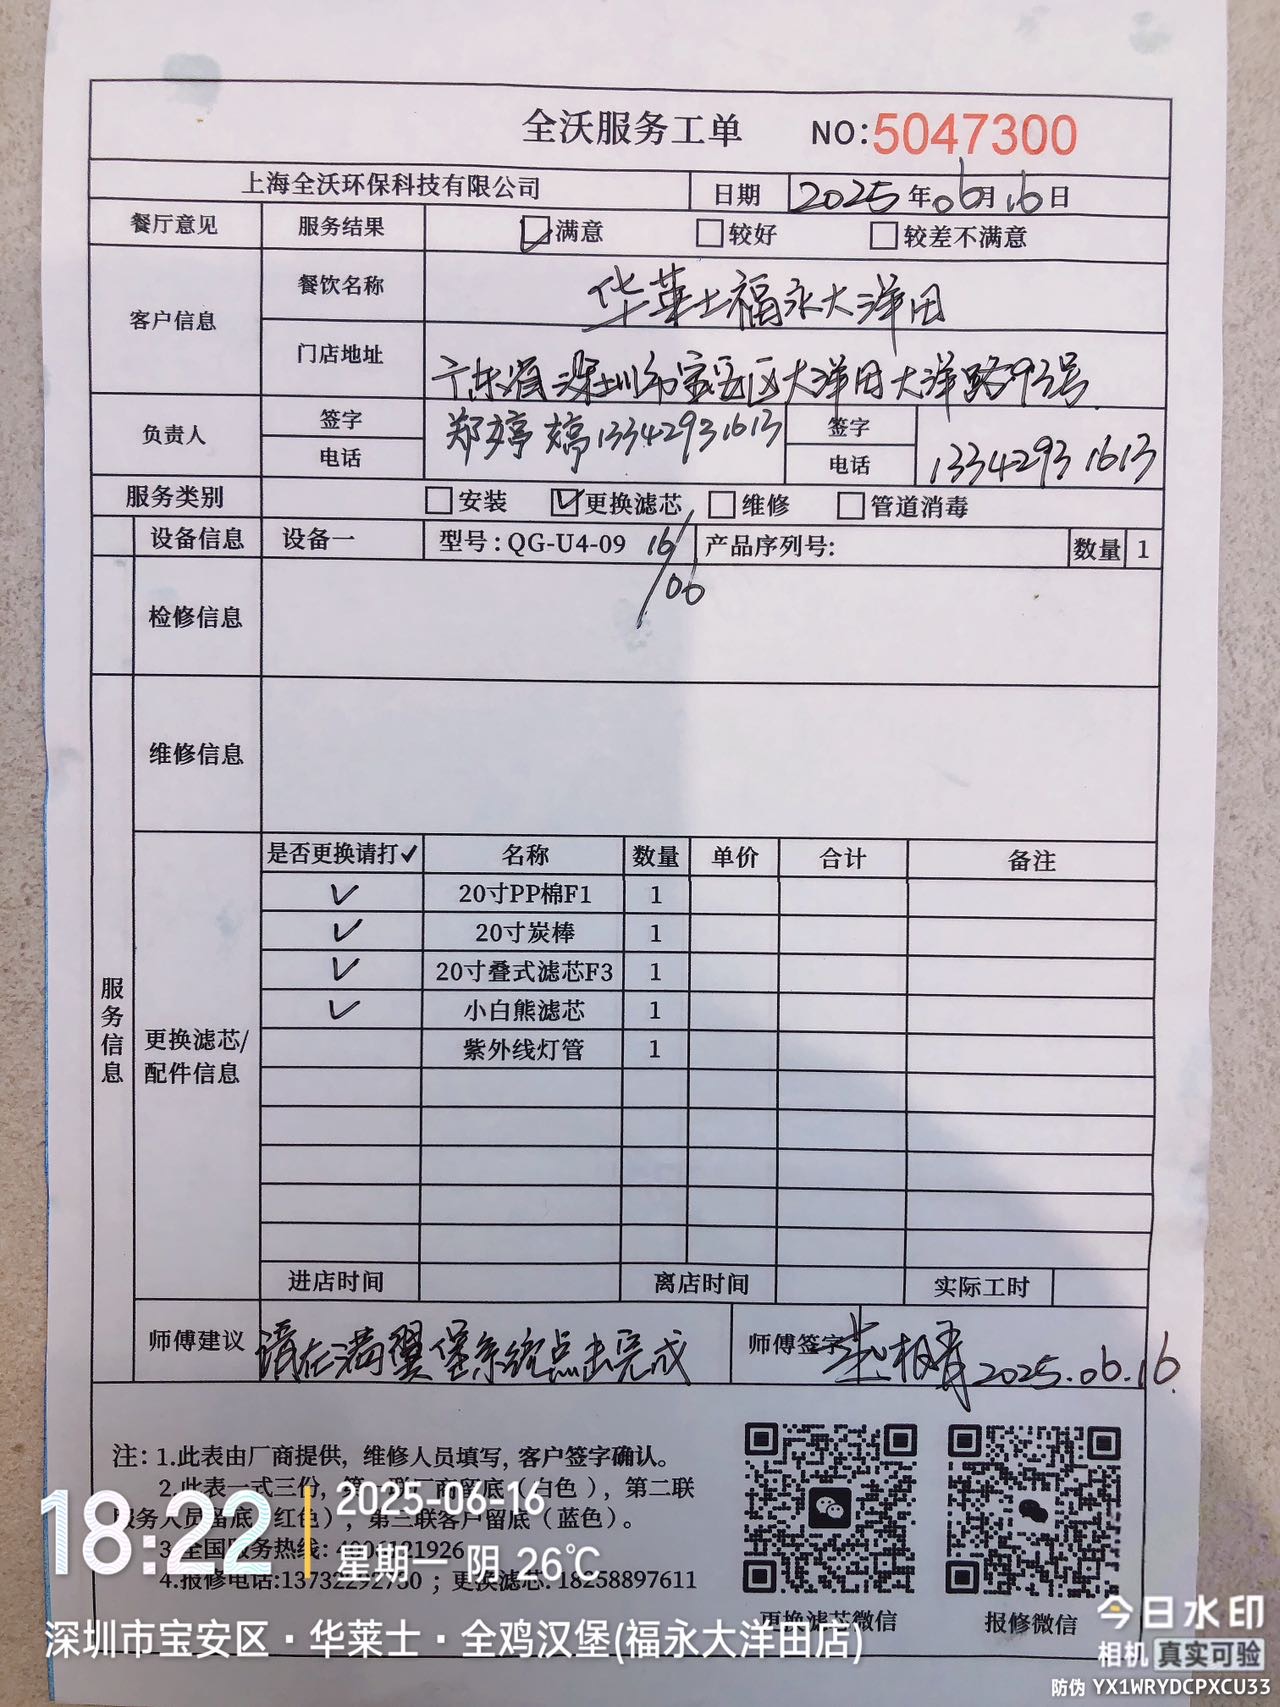 全沃服务工单 NO:5047300
上海全沃环保科技有限公司 日期 2025年06月16日
餐厅意见 服务结果 满意 较好 较差不满意
客户信息 餐饮名称 华莱士福永大洋田
门店地址 广东省深圳市宝安区大洋田大洋路93号
负责人 签字 郑婷婷13342931613 签字
电话 电话 13342931613
服务类别 安装 更换滤芯 维修 管道消毒
设备信息 设备一 型号:QG-U4-09 16/06 产品序列号: 数量 1
检修信息
维修信息
服务信息
更换滤芯/
配件信息
是否更换请打✓ 名称 数量 单价 合计 备注
✓ 20寸PP棉F1 1
✓ 20寸炭棒 1
✓ 20寸叠式滤芯F3 1
✓ 小白熊滤芯 1
紫外线灯管 1
进店时间 离店时间 实际工时
师傅建议 请在满翼堡系统点击完成 师傅签字 2025.06.16
注:1.此表由厂商提供,维修人员填写,客户签字确认。
2.此表一式三份,第一联厂商留底(白色),第二联
服务人员留底(红色),第三联客户留底(蓝色)。
3.全国服务热线:
4.报修电话:13732292730;更换滤芯:18258897611
更换滤芯微信 报修微信
18:22 2025-06-16
星期一 阴 26℃
深圳市宝安区·华莱士·全鸡汉堡(福永大洋田店)
今日水印
相机 真实可验
防伪 YX1WRYDCPXCU33